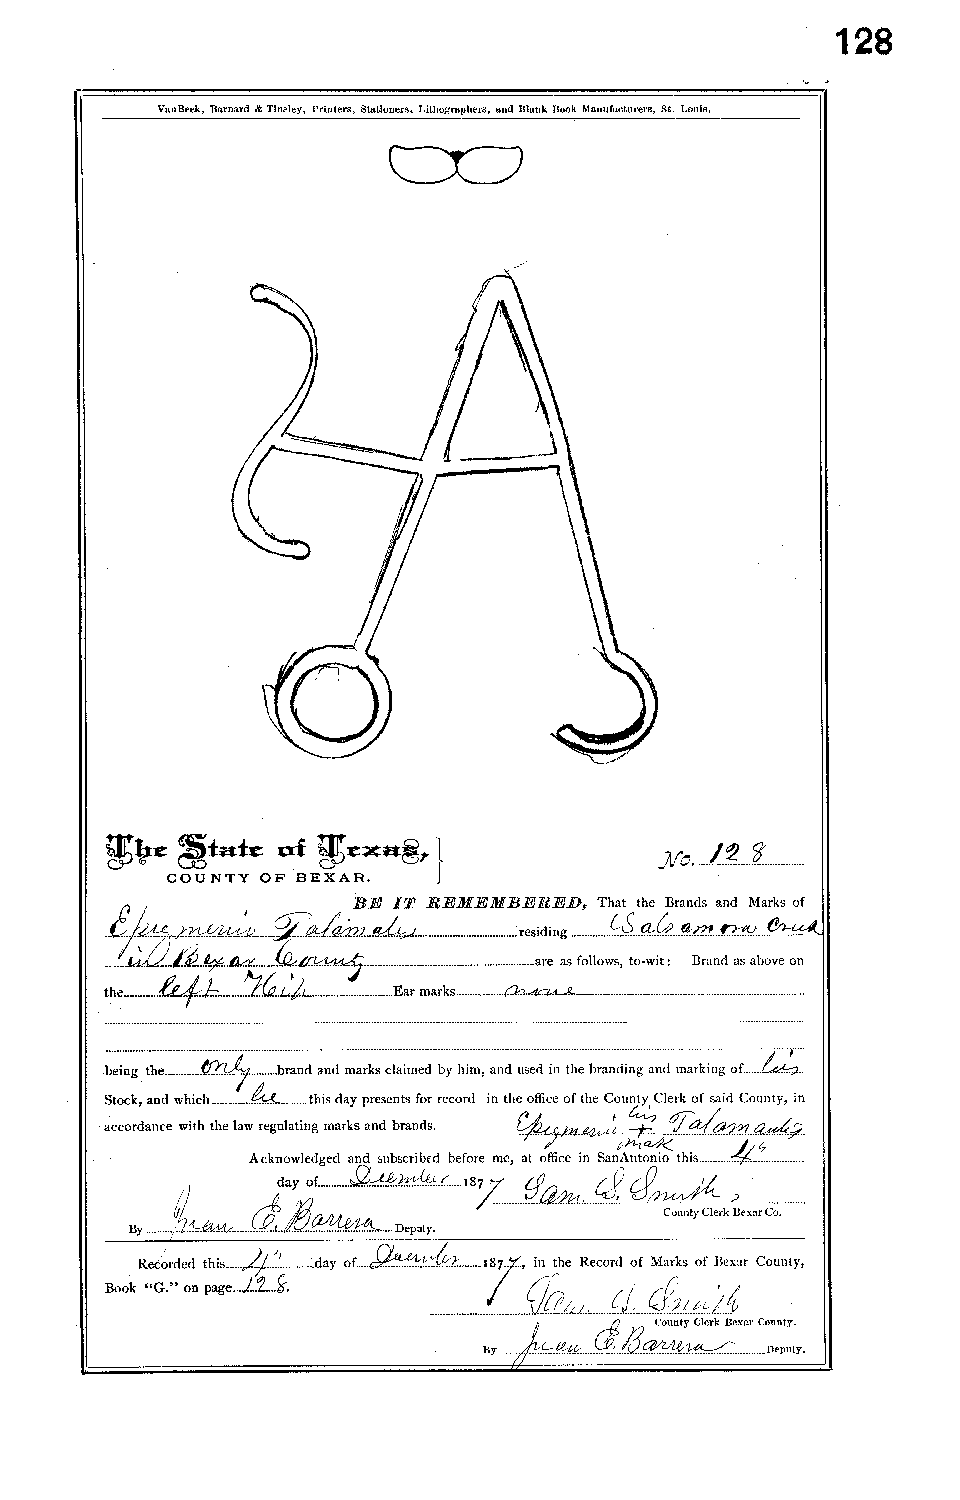 128
VanBeek, Barnard & Tinsley, Printers, Stationers, Lithographers, and Blank Book Manufacturers, St. Louis.
The State of Texas,
COUNTY OF BEXAR.
No. 128
BE IT REMEMBERED, That the Brands and Marks of
Epigmenio Talamantes residing Salsamora Creek
in Bexar County are as follows, to-wit: Brand as above on
the left Hip Ear marks none
being the only brand and marks claimed by him, and used in the branding and marking of his
Stock, and which he this day presents for record in the office of the County Clerk of said County, in
accordance with the law regulating marks and brands.
Epigmenio his + mark Talamantes
Acknowledged and subscribed before me, at office in SanAntonio this 4"
day of December 1877 Sam. S. Smith,
County Clerk Bexar Co.
By Juan E. Barrera Deputy.
Recorded this 4" day of December 1877, in the Record of Marks of Bexar County,
Book “G.” on page 128.
Sam. S. Smith
County Clerk Bexar County.
By Juan E. Barrera Deputy.